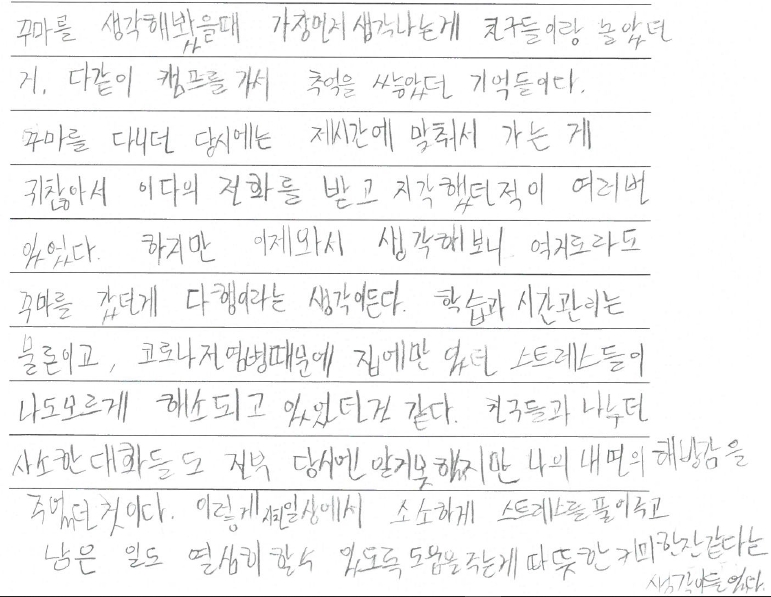 꾸마를 생각해봤을때 가장먼저생각나는게 친구들이랑 놀았던
거, 다같이 캠프를가서 추억을 쌓았던 기억들이다.
꾸마를 다니던 당시에는 제시간에 맞춰서 가는 게
귀찮아서 이다의 전화를 받고 지각했던적이 여러번
있었다. 하지만 이제와서 생각해보니 억지로라도
꾸마를 갔던게 다행이라는 생각이든다. 학습과 시간관리는
물론이고, 코로나전염병때문에 집에만 있던 스트레스들이
나도모르게 해소되고 있었던건 같다. 친구들과 나누던
사소한대화들도 전부 당시엔 알지못했지만 나의내면의해방감을
주었던것이다. 이렇게 일상에서 소소하게 스트레스를풀어주고
남은 일도 열심히 할수 있도록도움을주는게따뜻한커피한잔같다는
생각이들었다.